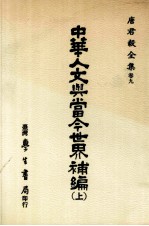 唐君毅全集 卷九
中華人文與當今世界補編（上）
臺灣學生書局印行